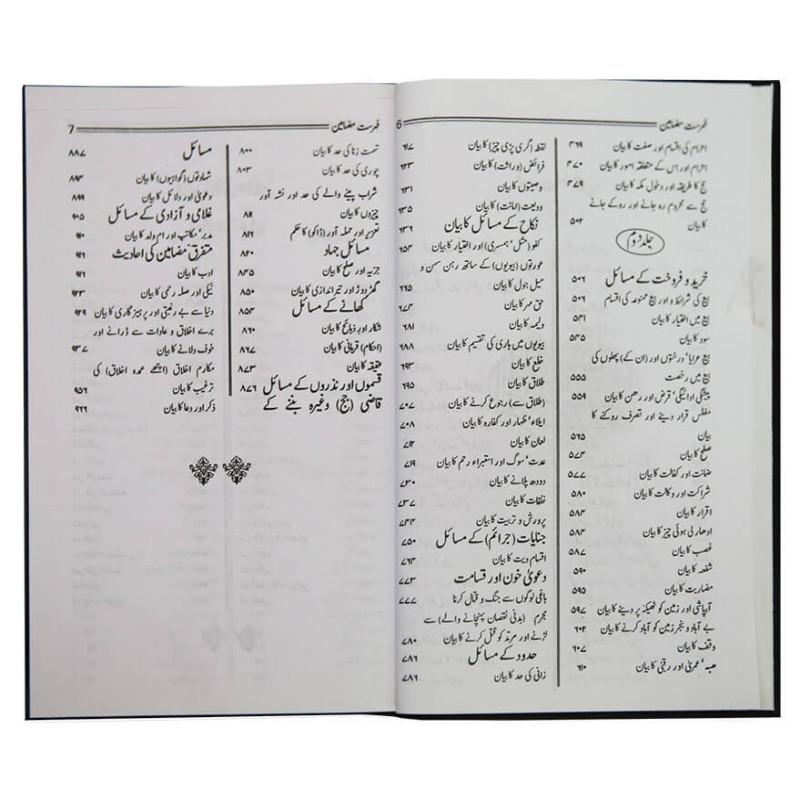 فہرست مضامین 6
احرام کی اقسام اور صفت کا بیان ۴۶۹
احرام اور اس کے متعلقہ امور کا بیان ۴۷۰
حج کا طریقہ اور دخول مکہ کا بیان ۴۷۹
حج سے محروم رہ جانے اور روکے جانے
کا بیان ۵۰۲
جلد دوم
خرید و فروخت کے مسائل ۵۰۶
بیع کی شرائط و اور بیع ممنوعہ کی اقسام ۵۰۶
بیع میں اختیار کا بیان ۵۴۱
سود کا بیان ۵۴۵
بیع عرایا‘ درختوں اور (ان کے) پھلوں کی
بیع میں رخصت ۵۵۵
پیشگی ادائیگی‘ قرض اور رھن کا بیان
مفلس قرار دینے اور تصرف روکنے کا
بیان ۵۶۵
صلح کا بیان ۵۷۴
ضمانت اور کفالت کا بیان ۵۷۷
شراکت اور وکالت کا بیان ۵۸۰
اقرار کا بیان ۵۸۴
ادھار لی ہوئی چیز کا بیان
غصب کا بیان ۵۸۷
شفعہ کا بیان ۵۹۰
مضاربت کا بیان ۵۹۵
آبپاشی اور زمین کو ٹھیکہ پر دینے کا بیان ۵۹۷
بے آباد و بنجر زمین کو آباد کرنے کا بیان ۶۰۲
وقف کا بیان ۶۰۷
ھبہ‘ عمریٰ اور رقبیٰ کا بیان ۶۱۰
لقطہ (گری پڑی چیز) کا بیان ۶۱۷
فرائض (وراثت) کا بیان ۶۲۳
وصیتوں کا بیان ۶۳۱
ودیعت (امانت) کا بیان ۶۳۵
نکاح کے مسائل کا بیان ۶۳۶
کفو (مثل‘ ہمسری) اور اختیار کا بیان ۶۵۴
عورتوں (بیویوں) کے ساتھ رہن سہن و
میل جول کا بیان ۶۶۵
حق مہر کا بیان ۶۷۴
ولیمہ کا بیان ۶۸۱
بیویوں میں باری کی تقسیم کا بیان ۶۸۸
خلع کا بیان ۶۹۳
طلاق کا بیان ۶۹۵
(طلاق سے) رجوع کرنے کا بیان ۷۰۷
ایلاء‘ ظہار اور کفارہ کا بیان ۷۰۸
لعان کا بیان
عدت‘ سوگ اور استبراء رحم کا بیان ۷۱۹
دودھ پلانے کا بیان ۷۳۰
نفقات کا بیان ۷۳۷
پرورش و تربیت کا بیان ۷۴۴
جنایات (جرائم) کے مسائل ۷۵۰
اقسام دیت کا بیان
دعویٰ خون اور قسامت ۷۷۳
باغی لوگوں سے جنگ و قتال کرنا ۷۷۷
مجرم (بدنی نقصان پہنچانے والے) سے
لڑنے اور مرتد کو قتل کرنے کا بیان ۷۸۰
حدود کے مسائل ۷۸۶
زانی کی حد کا بیان ۷۸۶
فہرست مضامین 7
تہمت زنا کی حد کا بیان ۸۰۰
چوری کی حد کا بیان ۸۰۳
شراب پینے والے کی حد اور نشہ آور
چیزوں کا بیان ۸۱۱
تعزیر اور حملہ آور (ڈاکو) کا حکم
مسائل جہاد ۸۲۰
جزیہ اور صلح کا بیان ۸۴۵
گھڑ دوڑ اور تیر اندازی کا بیان ۸۵۰
کھانے کے مسائل ۸۵۴
شکار اور ذبائح کا بیان ۸۶۰
(احکام) قربانی کا بیان ۸۶۷
عقیقہ کا بیان ۸۷۳
قسموں اور نذروں کے مسائل ۸۷۶
قاضی (جج) وغیرہ بننے کے
مسائل ۸۸۷
شہادتوں (گواہیوں) کا بیان ۸۹۳
دعویٰ اور دلائل کا بیان ۸۹۹
غلامی و آزادی کے مسائل ۹۰۵
مدبر‘ مکاتب اور ام ولد کا بیان ۹۱۰
متفرق مضامین کی احادیث ۹۱۶
ادب کا بیان ۹۱۶
نیکی اور صلہ رحمی کا بیان
دنیا سے بے رغبتی اور پرہیز گاری کا بیان ۹۲۹
برے اخلاق و عادات سے ڈرانے اور
خوف دلانے کا بیان ۹۳۷
مکارم اخلاق (اچھے عمدہ اخلاق) کی
ترغیب کا بیان ۹۵۶
ذکر اور دعا کا بیان ۹۶۶